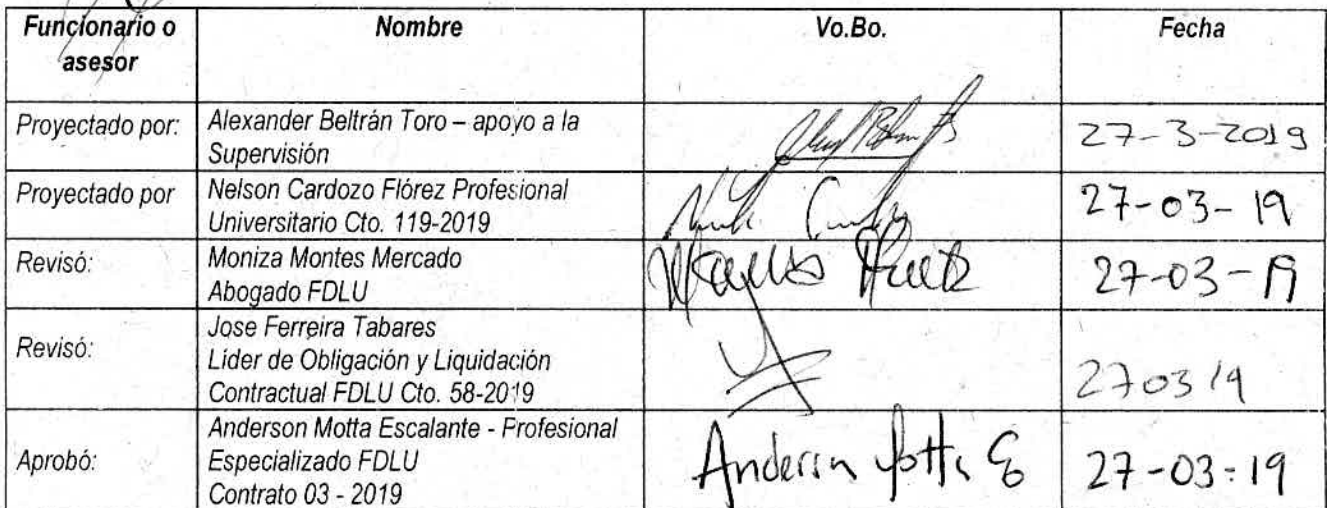 Funcionario o
asesor
Nombre
Vo.Bo.
Fecha
Proyectado por:
Alexander Beltrán Toro – apoyo a la
Supervisión
27-3-2019
Proyectado por
Nelson Cardozo Flórez Profesional
Universitario Cto. 119-2019
27-03-19
Revisó:
Moniza Montes Mercado
Abogado FDLU
27-03-19
Revisó:
Jose Ferreira Tabares
Lider de Obligación y Liquidación
Contractual FDLU Cto. 58-2019
270319
Aprobó:
Anderson Motta Escalante - Profesional
Especializado FDLU
Contrato 03 - 2019
Anderson Motta E
27-03-19